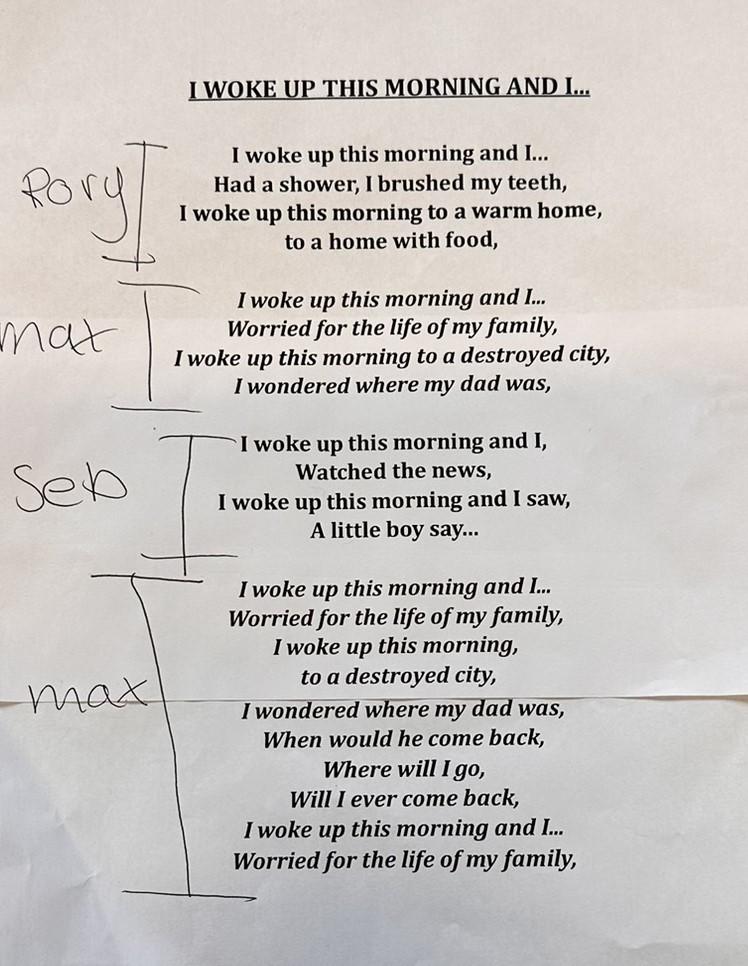 I WOKE UP THIS MORNING AND I...
Rory
I woke up this morning and I...
Had a shower, I brushed my teeth,
I woke up this morning to a warm home,
to a home with food,
max
I woke up this morning and I...
Worried for the life of my family,
I woke up this morning to a destroyed city,
I wondered where my dad was,
Seb
I woke up this morning and I,
Watched the news,
I woke up this morning and I saw,
A little boy say...
max
I woke up this morning and I...
Worried for the life of my family,
I woke up this morning,
to a destroyed city,
I wondered where my dad was,
When would he come back,
Where will I go,
Will I ever come back,
I woke up this morning and I...
Worried for the life of my family,